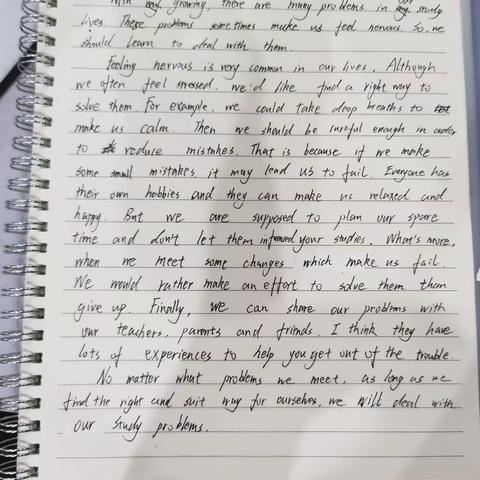 With growing, there are many problems in our study
lives. These problems sometimes make us feel nervous. So, we
should learn to deal with them.
Feeling nervous is very common in our lives. Although
we often feel stressed. we'd like find a right way to
solve them. For example, we could take deep breaths to
make us calm. Then we should be careful enough in order
to reduce mistakes. That is because if we make
some small mistakes, it may lead us to fail. Everyone has
their own hobbies and they can make us relaxed and
happy. But we are supposed to plan our spare
time and don't let them your studies. What's more,
when we meet some changes which make us fail.
We would rather make an effort to solve them than
give up. Finally, we can share our problems with
our teachers, parents and friends. I think they have
lots of experiences to help you get out of the trouble.
No matter what problems we meet, as long as we
find the right and suit way for ourselves, we will deal with
our study problems.